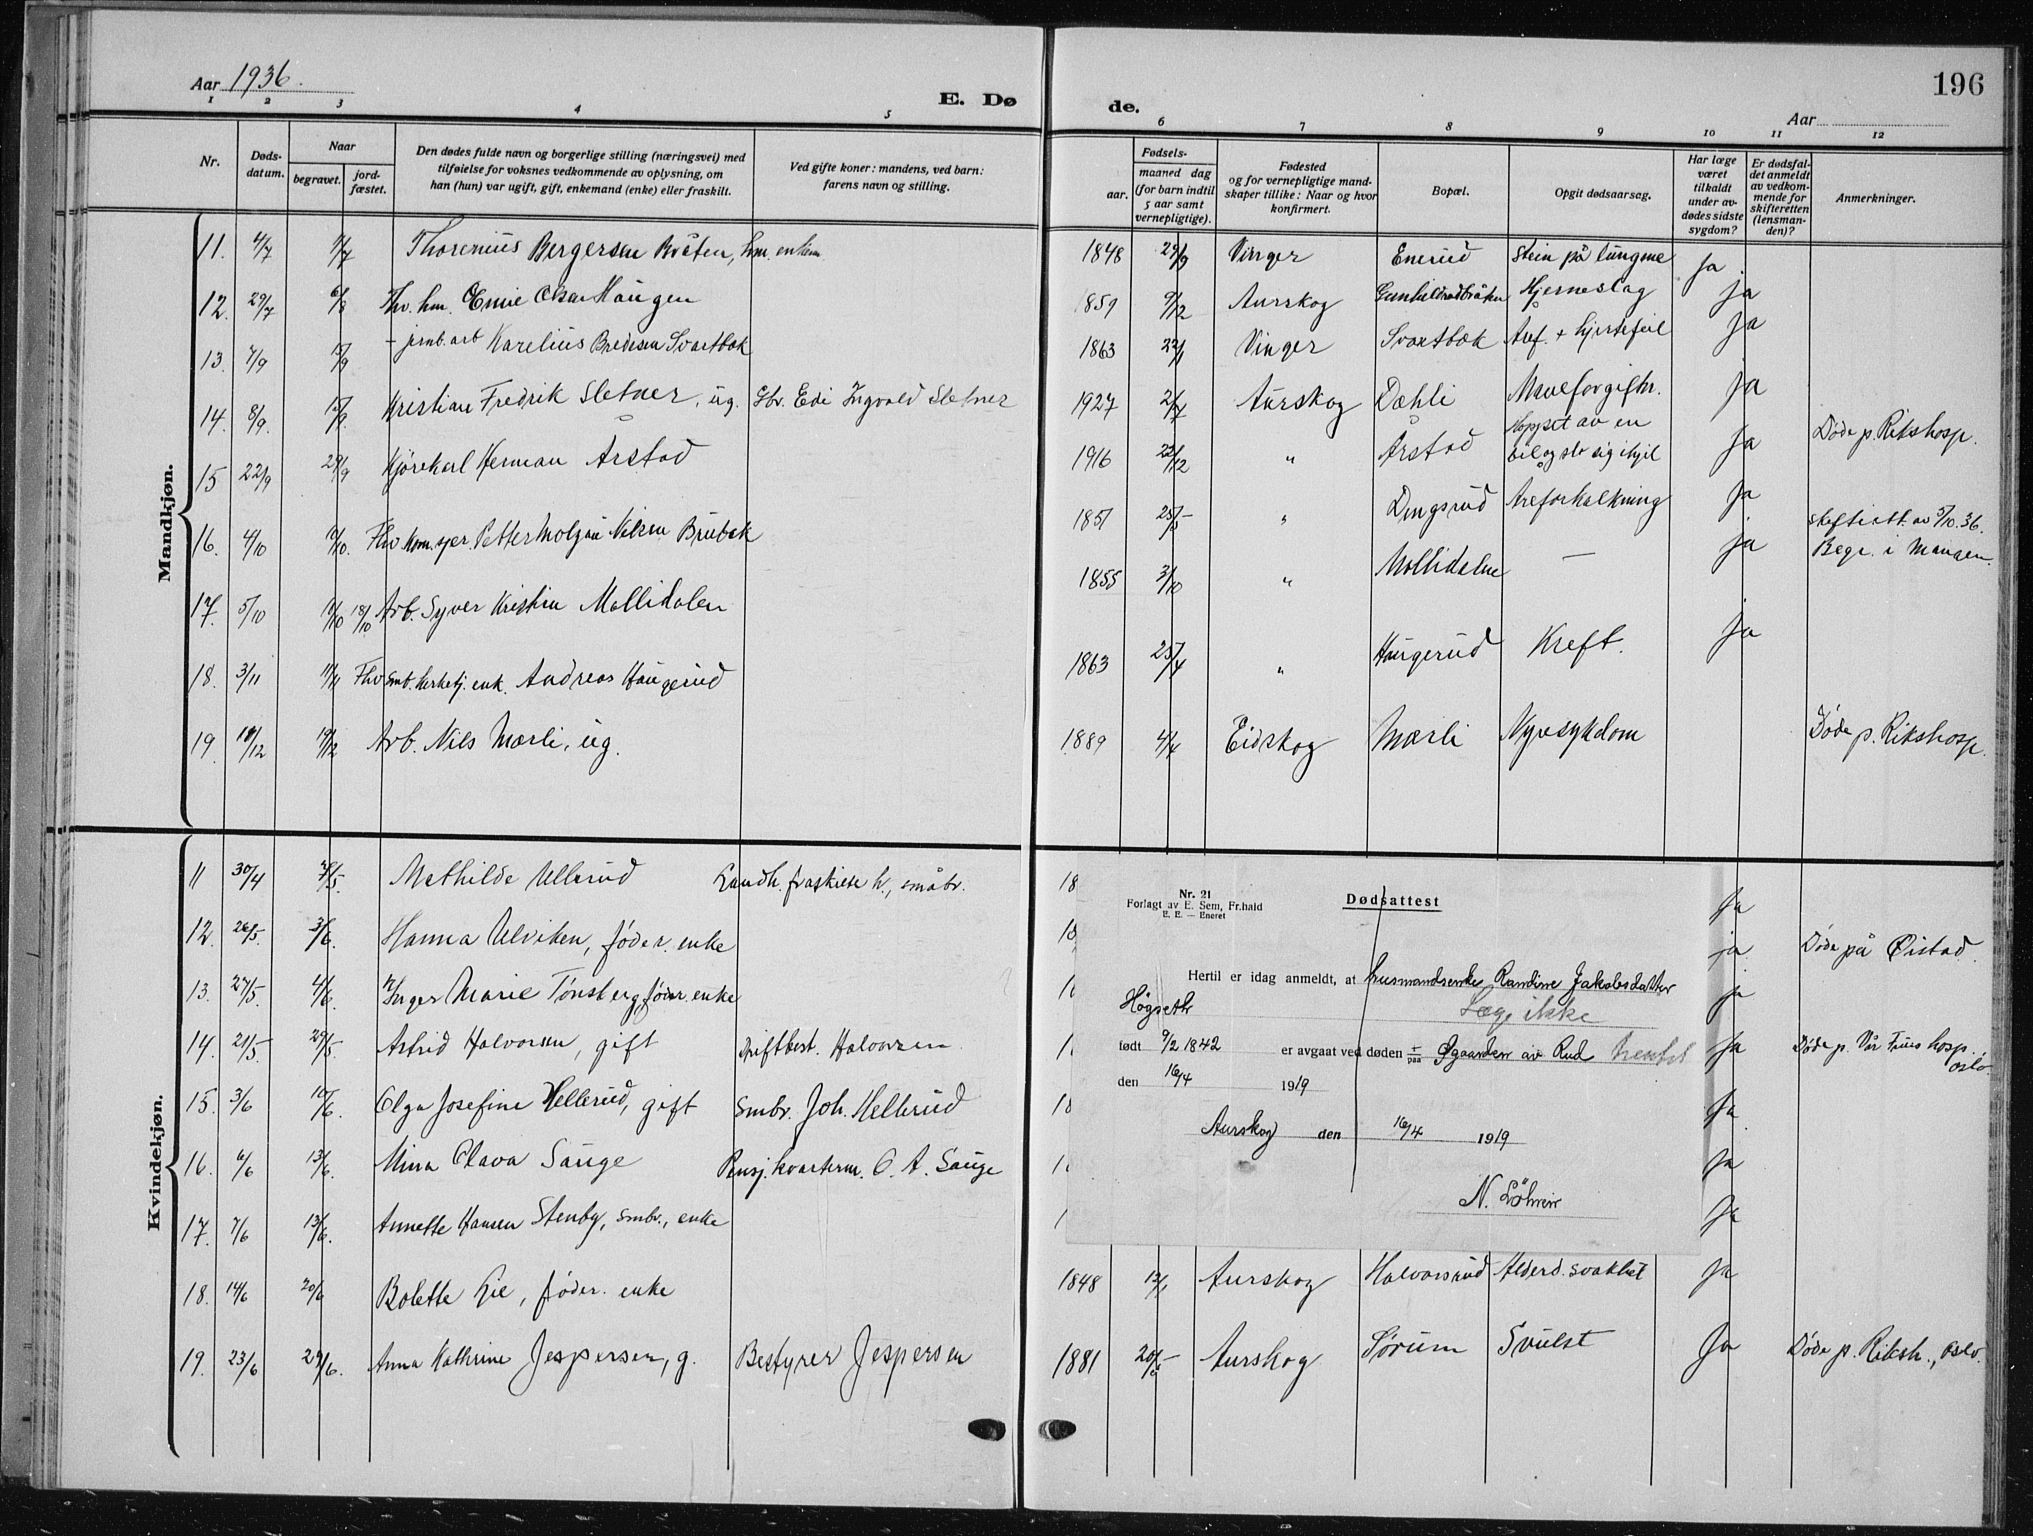 Aar 1936.
E. Dø
de.
Aar
196
1 2 3 4 5 6 7 8 9 10 11 12
Nr.
Døds-
datum.
Naar
begravet.
jord-
fæstet.
Den dødes fulde navn og borgerlige stilling (næringsvei) med
tilføielse for voksnes vedkommende av oplysning, om
han (hun) var ugift, gift, enkemand (enke) eller fraskilt.
Ved gifte koner: mandens, ved barn:
farens navn og stilling.
Fødsels-
aar.
maaned dag
(for barn indtil
5 aar samt
vernepligtige).
Fødested
og for vernepligtige mand-
skaper tillike: Naar og hvor
konfirmert.
Bopæl.
Opgit dødsaarsag.
Har læge
været
tilkaldt
under av-
dødes sidste
sygdom?
Er dødsfal-
det anmeldt
av vedkom-
mende for
skifteretten
(lensman-
den)?
Anmerkninger.
Mandkjøn.
11. 4/7 /7 Thorenius Bergersen Bråten, hm. enkem 1848 29/9 Vinger Enerud Stein på lungene Ja
12. 29/7 6/8 Fhv. hm. Emie Oskar Haugen 1859 9/12 Aurskog Gunhildrudbråten Hjerneslag Ja
13. 7/9 /9 - jernb.arb Karelius Bredesen Svartbæk 1863 22/1 Vinger Svartbæk Åref. + hjertefeil Ja
14. 8/9. /9. Kristian Fredrik Sletner, ug. Gbr. Edi Ingvald Sletner 1927 2/7 Aurskog Dæhli Maveforgiftn. Ja
15 22/9 29/9 Kjørekarl Herman Årstad 1916 22/12 " Årstad Hoppet av en
bil og slo sig ihjel Ja Døde p. Rikshosp.
16. 4/10 10/10. Fhv Kom.sjer. Petter Molgau Nilsen Brubak 1851 25/5 " Dingsrud Areforkalkning Ja Skifteatt. av 5/10.36.
17. 5/10 /10 18/10 Arb. Syver Kristian Mollidalen 1855 3/10 " Mollidalen — Ja Begr. i Mangen.
18. 3/11 11/11 Fhv smb. Kirketj. enk. Andreas Haugerud 1863 25/4 " Haugerud Kreft. Ja
19. /12 19/12 Arb. Nils Mærli, ug. 1889 4/4 Eidskog Mærli Nyresykdom Døde p. Rikshosp.
Kvindekjøn.
11 30/4 /5. Mathilde Ullerud Landh. fraskilte h., småbr. 18 Ja
12. 26/5. 3/6. Hanna Ulviken, føder. enke 18 Ja Døde på Øistad.
13. 27/5. 4/6. Inger Marie Tønsberg, føder. enke 1 Ja
14. 21/5. 29/5. Astrid Halvorsen, gift Driftbest. Halvorsen 1 Ja Døde p. Vår Frues hosp.
Oslo
15. 3/6 10/6. Olga Josefine Hellerud, gift Smbr. Joh. Hellerud 18 Ja
16. 6/6 13/6. Mina Olava Sauge Pensj. kvarterm. O. A. Sauge 1 Ja
17. 7/6 13/6. Annette Hansen Stenby, smbr., enke 1 Ja
18. 14/6 20/6 Bolette Lie, føder. enke 1848 12/1 Aurskog Halvorsrud Alderd. svakhet Ja
19. 23/6 29/6. Anna Kathrine Jespersen, g. Bestyrer Jespersen 1881 Aurskog Sørum Svulst Ja Døde p. Riksh., Oslo.
Nr. 21
Forlagt av E. Sem, Fr.hald
E. E. — Eneret
Dødsattest
Hertil er idag anmeldt, at husmandsenke Randine Jakobsdatter
Høgseth Læge ikke
født 9/2 1842 er avgaat ved døden i/paa Øgaarden av Rud hentet
den 16/4 1919
Aurskog den 16/4 1919
N. Løhren